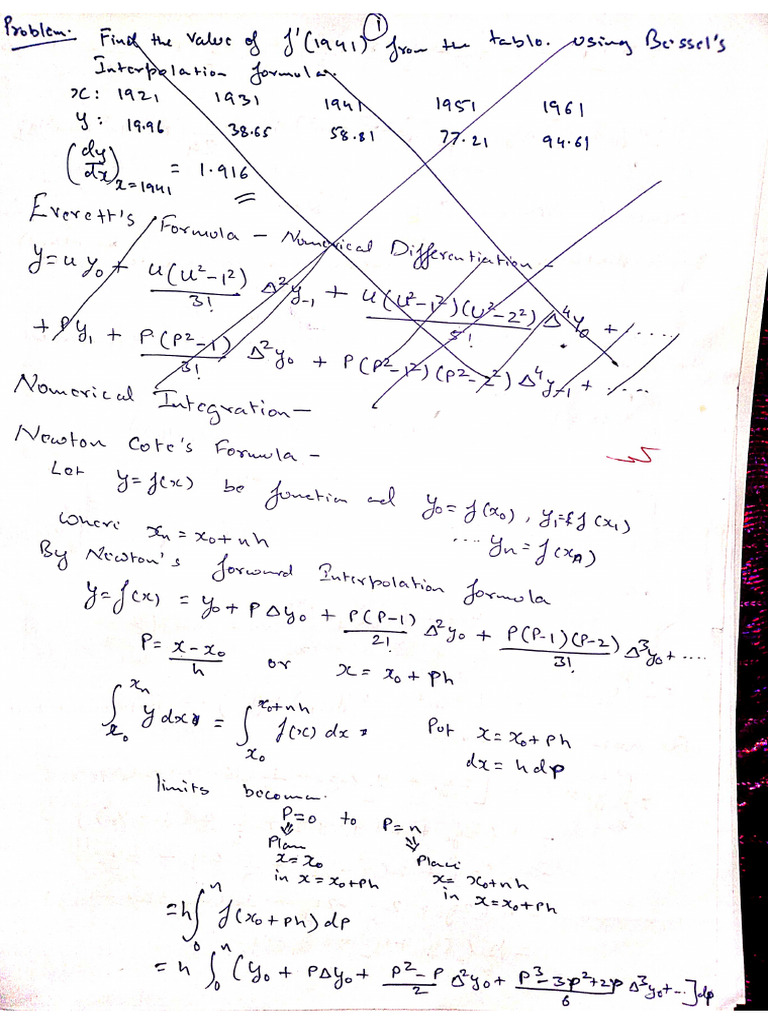 Problem:- Find the value of f'(1941) ① from the table. using Bessel's
Interpolation formula.
x: 1921 1931 1941 1951 1961
y: 19.96 38.65 58.81 77.21 94.61
(dy/dx)x=1941 = 1.916
Everett's Formula – Numerical Differentiation –
y = u y₀ + u(u²-1²)/3! Δ²y₋₁ + u(u²-1²)(u²-2²)/5! Δ⁴y₀ + ....
+ P y₁ + P(P²-1)/3! Δ²y₀ + P(P²-1²)(P²-2²) Δ⁴y₋₁ + ....
Numerical Integration –
Newton Cote's Formula –
Let y = f(x) be function and y₀ = f(x₀), y₁ = f(x₁)
where xₙ = x₀ + nh .... yₙ = f(xₙ)
By Newton's forward Interpolation formula
y = f(x) = y₀ + P Δy₀ + P(P-1)/2! Δ²y₀ + P(P-1)(P-2)/3! Δ³y₀ + ....
P = x - x₀/h or x = x₀ + Ph
∫x₀^xₙ y dx = ∫x₀^x₀+nh f(x) dx Put x = x₀ + ph
dx = h dp
limits become
P=0 to P=n
⇓ ⇓
Place Place
x = x₀ x = x₀+nh
in x = x₀+Ph in x = x₀+Ph
= h ∫₀ⁿ f(x₀ + Ph) dp
= h ∫₀ⁿ (y₀ + PΔy₀ + P² - P/2 Δ²y₀ + P³ - 3P² + 2P/6 Δ³y₀ + ...] dp